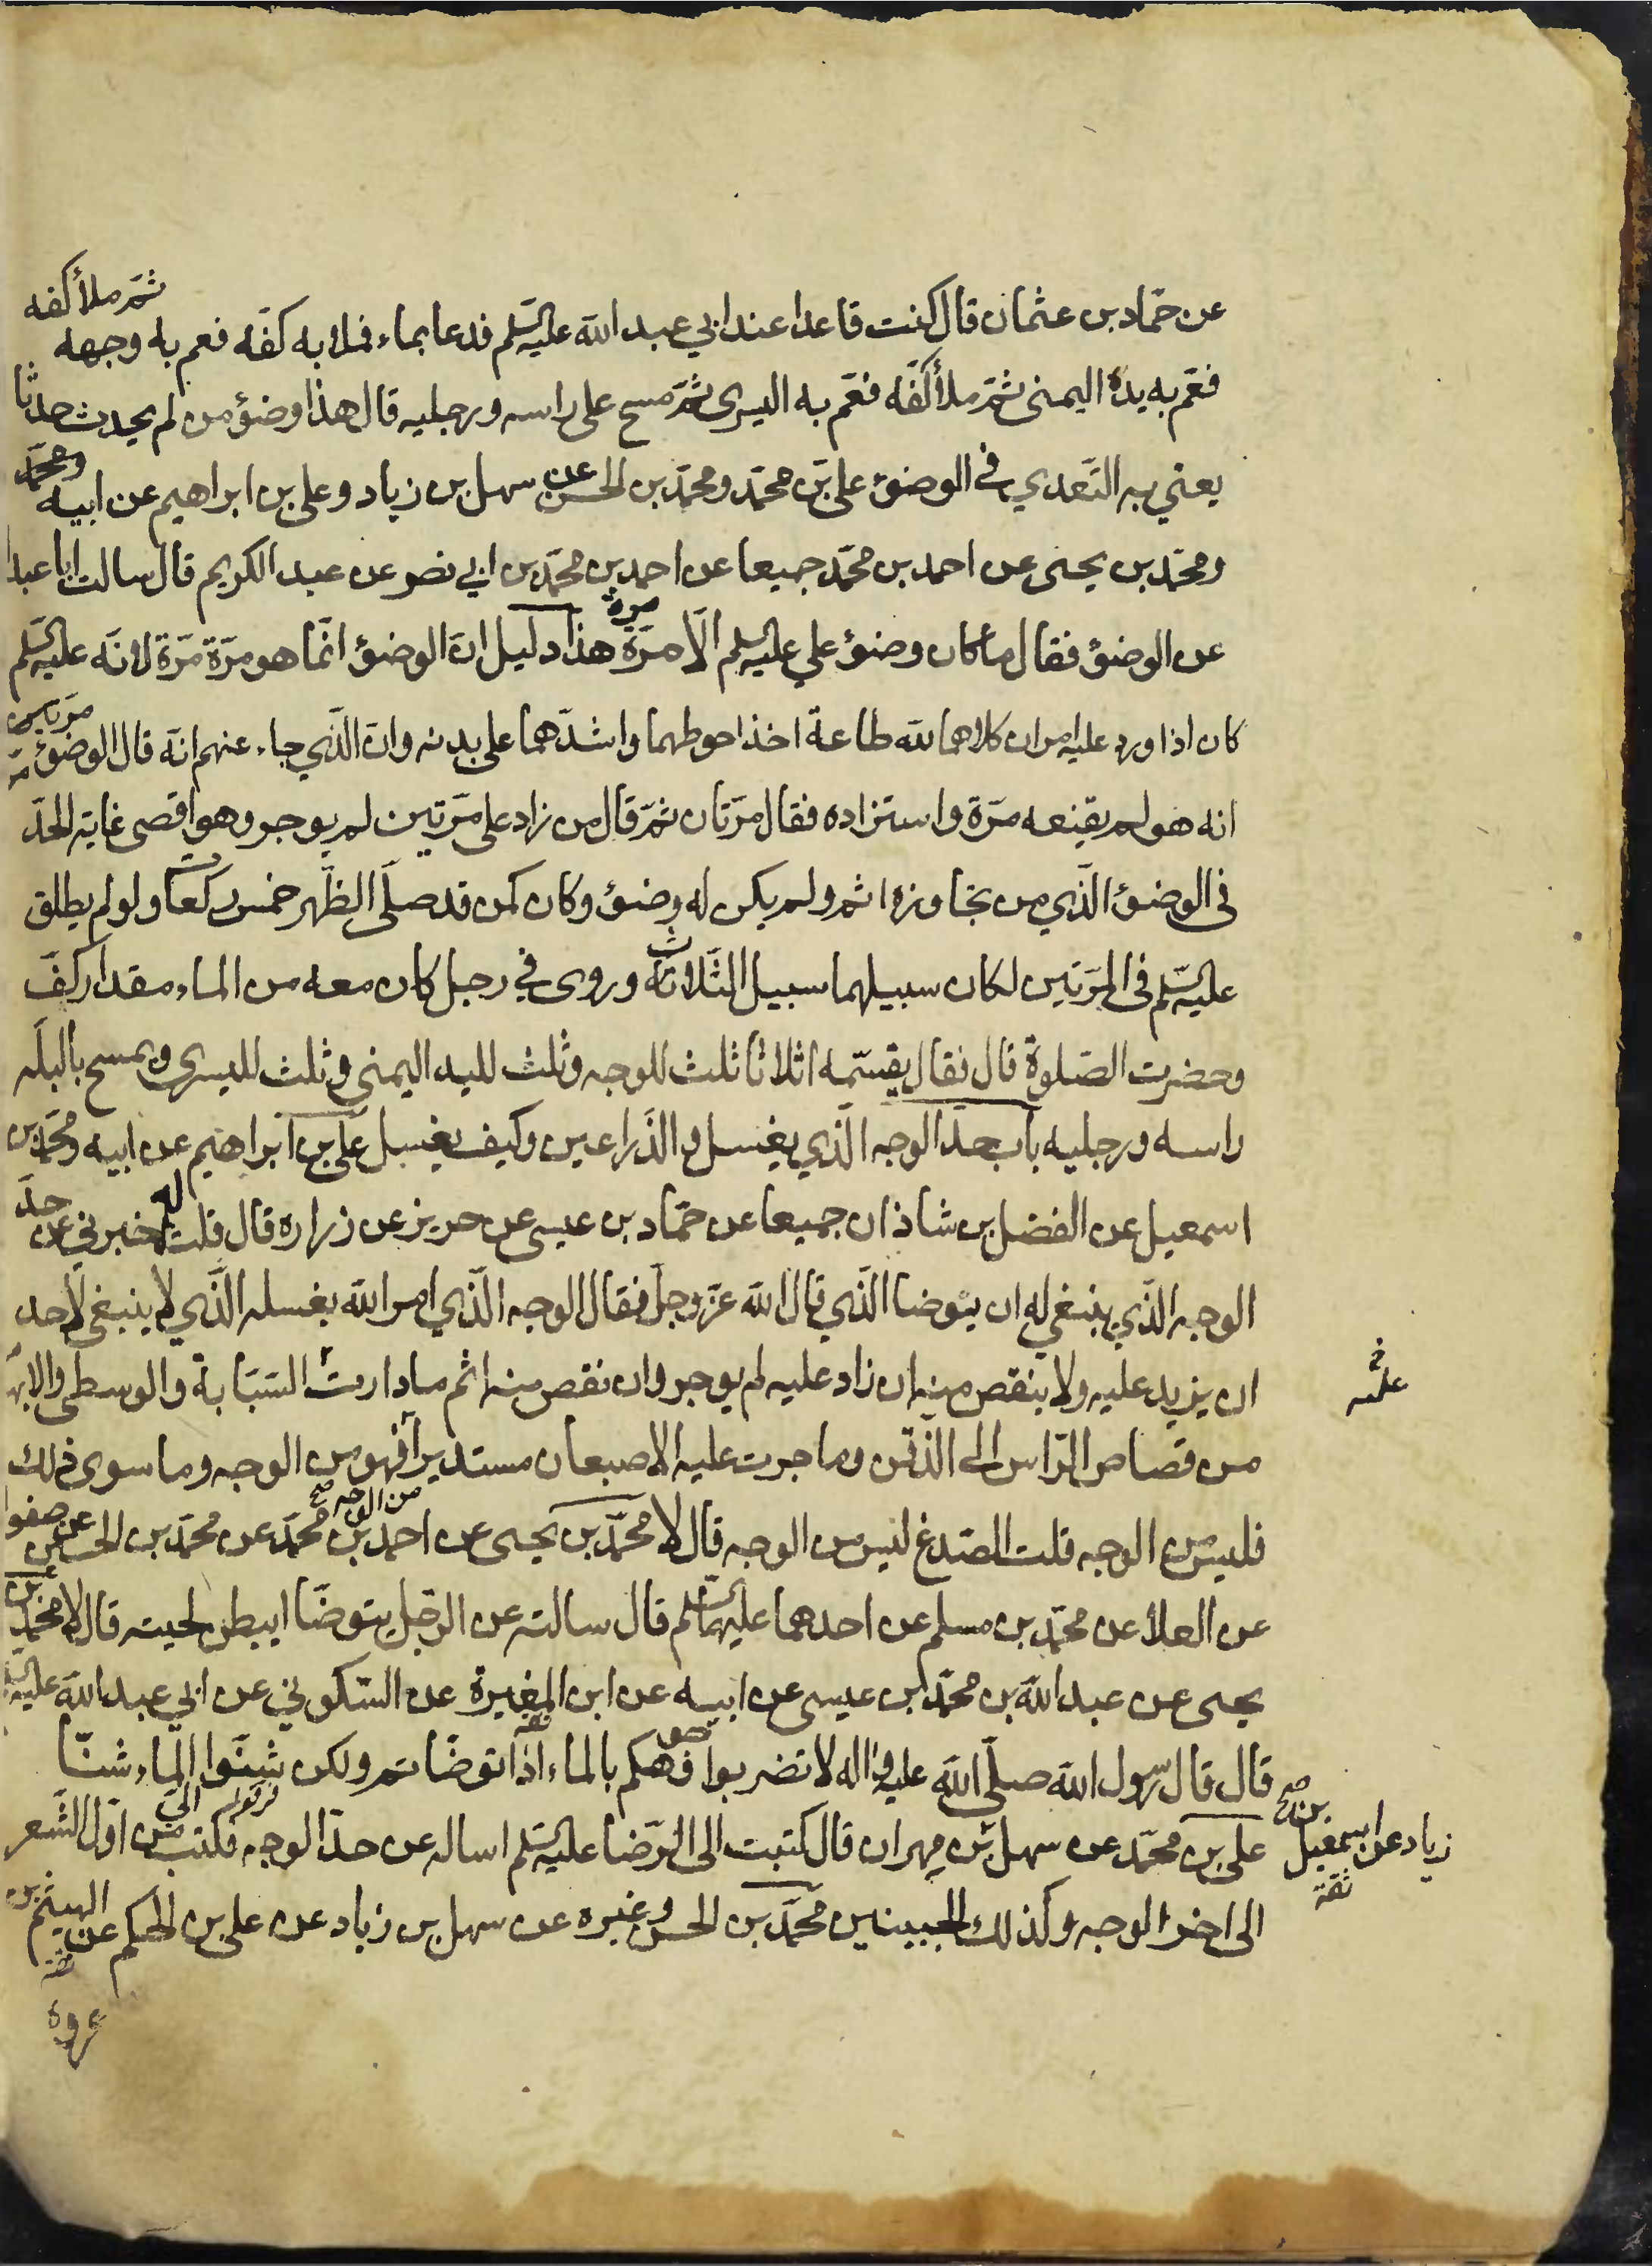 عن حمّاد بن عثمان قال كنت قاعدا عند ابي عبد الله عليه السّلم فدعا بماء فملا به كفّه فعم به وجهه ثمّ ملأ كفه
فعّم به يده اليمنى ثمّ ملأ كفّه فعّم به اليسرى ثمّ مسح على راسه ورجليه قال هذا وضوء من لم يحدث حدثا
يعني به التّعدي في الوضوء علي بن محمّد ومحمّد بن الحسن عن سهل بن زياد وعلي بن ابراهيم عن ابيه ومحمّد
ومحمّد بن يحيى عن احمد بن محمّد جميعا عن احمد بن محمّد بن ابي نصر عن عبد الكريم قال سالت ابا عبدا
عن الوضوء فقال ما كان وضوء علي عليه السلم الّا مرّة مرة هذا دليل انّ الوضوء انّما هو مرّة مرّة لانّه عليه السّلم
كان اذا ورد عليه امران كلاهما لله طاعة اخذ احوطهما واشدّهما على بدنه وانّ الّذي جاء عنهم انّه قال الوضوء مرّتان
انه هو لم يقنعه مرّة واستزاده فقال مرّتان ثمّ قال من زاد على مرّتين لم يوجر وهو اقصى غاية الحدّ
في الوضوء الّذي من تجاوزه اثم ولم يكن له وضوء وكان كمن قد صلّى الظّهر خمس ركعات ولو لم يطلق
عليه السّلم في المرّتين لكان سبيلهما سبيل الثّلاث وروى في رجل كان معه من الماء مقدار كفّ
وحضرت الصّلوة قال فقال يقسّمه اثلاثا ثلث للوجه وثلث لليد اليمنى وثلث لليسرى ويمسح بالبلّه
راسه ورجليه باب حدّ الوجه الّذي يغسل والذّراعين وكيف يغسل علي بن ابراهيم عن ابيه ومحمّد بن
اسمعيل عن الفضل بن شاذان جميعا عن حمّاد بن عيسى عن حريز عن زرارة قال قلت له اخبرني عن حدّ
الوجه الّذي ينبغي له ان يتوضا الّذي قال الله عزّ وجلّ فقال الوجه الّذي امر الله بغسله الّذي لا ينبغي لاحد
ان يزيد عليه ولا ينقص منه ان زاد عليه لم يوجر وان نقص منه اثم ما دارت السّبّابة والوسطى والابهـ
من قصاص الرّاس الى الذّقن وما جرت عليه الاصبعان مستديرا فهو من الوجه وما سوى ذلك
فليس من الوجه قلت الصّدغ ليس من الوجه قال لا محمّد بن يحيى عن احمد بن محمّد عن محمّد بن الحسين عن صفوا
من الوجه صح
عن العلا عن محمّد بن مسلم عن احدهما عليهما السّلم قال سالته عن الرّجل يتوضّا ايبطن لحيته قال لا محمّد بن
يحيى عن عبد الله بن محمّد بن عيسى عن ابيه عن ابن المغيرة عن السّكوني عن ابي عبد الله عليه السّلم
قال قال رسول الله صلّى الله عليه واله لا تضربوا وجوهكم بالماء اذا توضّاتم ولكن شنّوا الماء شنّا
علي بن محمّد عن سهل بن مهران قال كتبت الى الرّضا عليه السّلم اساله عن حدّ الوجه فكتب اليّ من اوّل الشّعر
زياد عن اسمعيل بن صح
ثقة
الى اخر الوجه وكذلك الجبينين محمّد بن الحسن وغيره عن سهل بن زياد عن علي بن الحكم عن الهيثم بن
عروة